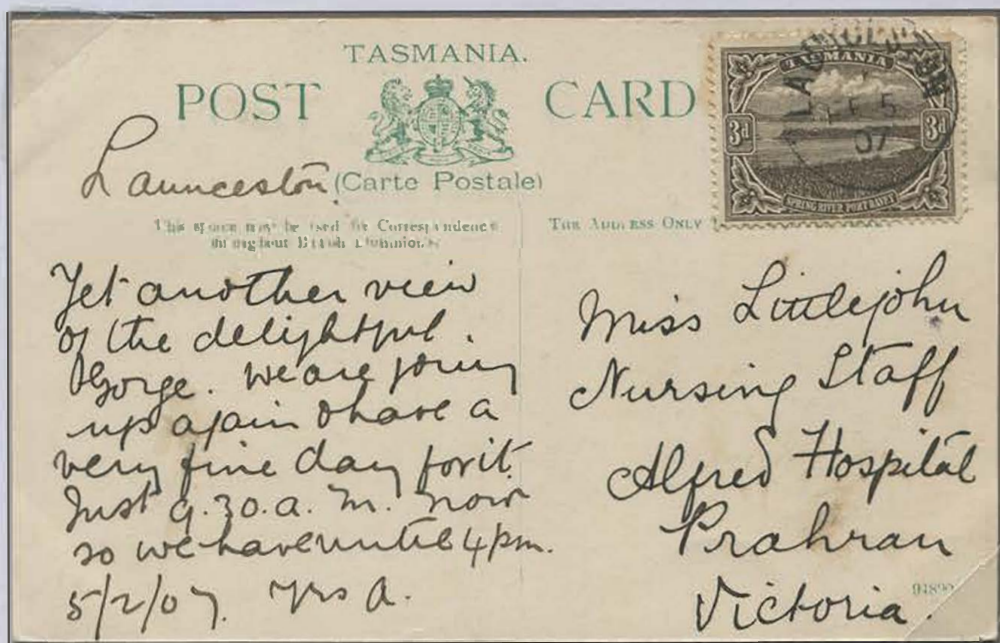 TASMANIA.
POST CARD
Launceston.
(Carte Postale)
This space may be used for Correspondence
throughout British Dominions.
THE ADDRESS ONLY
TASMANIA
3d 3d
SPRING RIVER, PORT DAVEY
FE 5
07
Yet another view
of the delightful
Gorge. We are going
up again & have a
very fine day for it.
Just 9.30.a.m. now
so we have until 4 pm.
5/2/07 Yrs A.
Miss Littlejohn
Nursing Staff
Alfred Hospital
Prahran
Victoria.